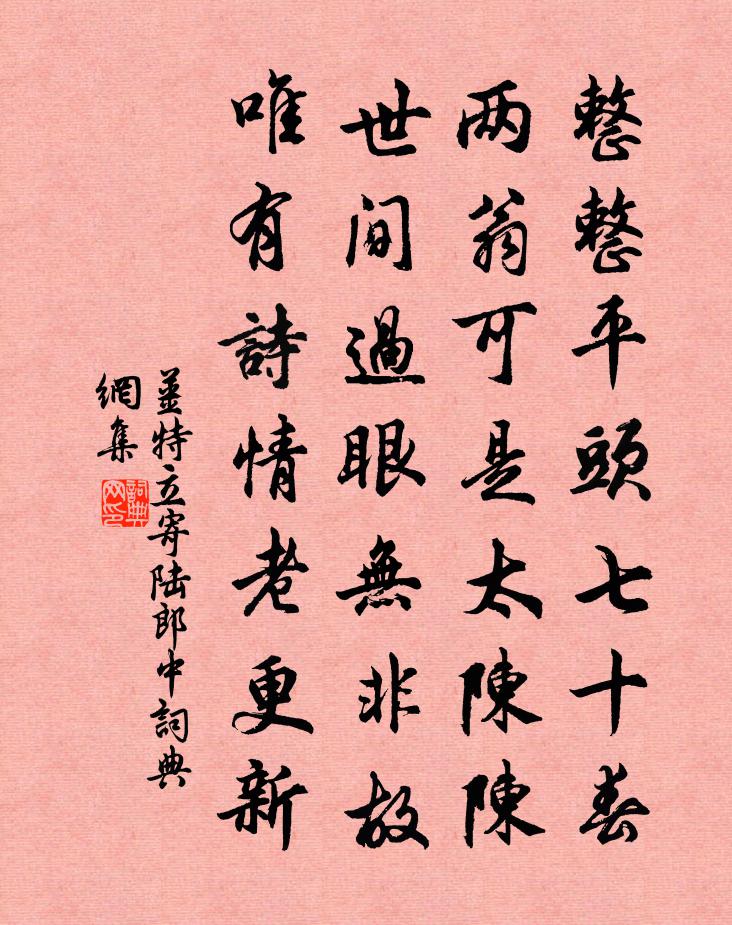 整整平頭七十春
两翁可是太陳陳
世间過眼無非故
唯有詩情老更新
姜特立寄陆郎中詞典
網集
詞典
网印